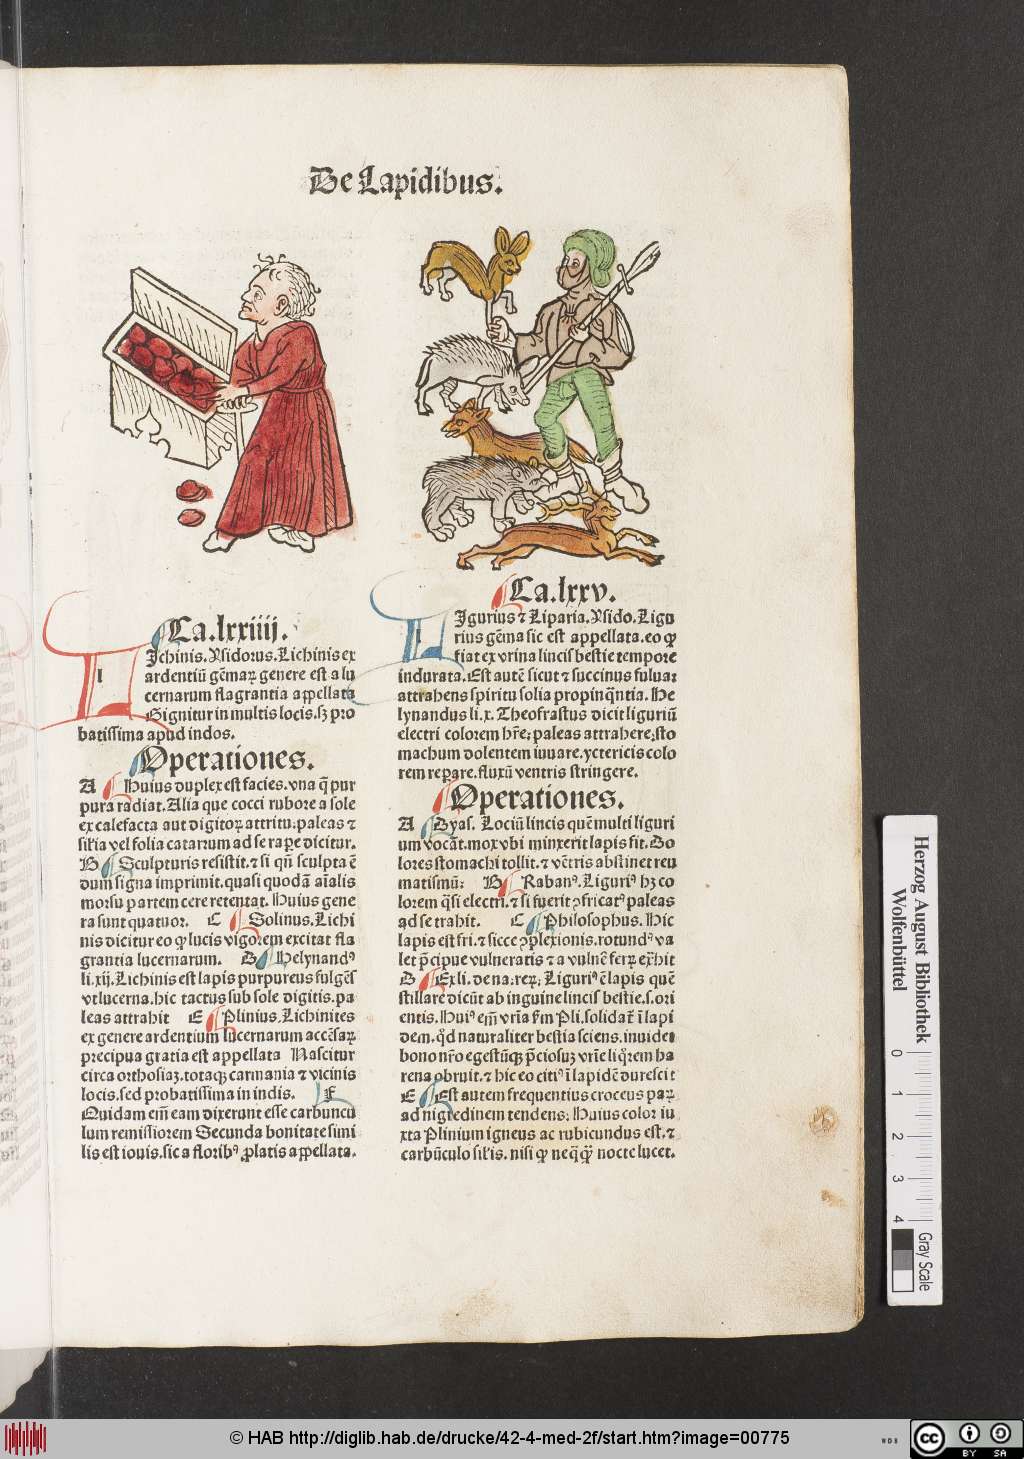 De Lapidibus.
Ca.lxxiiij.
Lichinis. Ysidorus. Lichinis ex
ardentiū gēmaꝝ genere est a lu
cernarum flagrantia appellata
Gignitur in multis locis. sꝫ pro
batissima apud indos.
Operationes.
A Huius duplex est facies. vna q̄ pur
pura radiat. Alia que cocci rubore a sole
excalefacta aut digitoꝝ attritu. paleas ⁊
silia vel folia catarum ad se rapere dicitur.
B Sculpturis resistit. ⁊ si qn̄ sculpta ē
dum signa imprimit. quasi quodā aīalis
morsu partem cere retentat. Huius gene
ra sunt quatuor. C Solinus. Lichi
nis dicitur eo ꝙ lucis vigorem excitat fla
grantia lucernarum. D Helynandꝰ
li. xij. Lichinis est lapis purpureus fulgēs
vt lucerna. hic tactus sub sole digitis. pa
leas attrahit E Plinius. Lichinites
ex genere ardentium lucernarum accēsaꝝ
precipua gratia est appellata Nascitur
circa orthosiaꝫ. totaqꝫ carmania ⁊ vicinis
locis. sed probatissima in indis. F
Quidam em̄ eam dixerunt esse carbuncu
lum remissiorem Secunda bonitate simi
lis est iouis. sic a floribꝰ ꝓlatis appellata.
Ca.lxxv.
Ligurius ⁊ Liparia. Ysido. Ligu
rius gēma sic est appellata. eo ꝙ
fiat ex vrina lincis bestie tempore
indurata. Est autē sicut ⁊ succinus fuluaꝫ
attrahens spiritu folia propinq̄ntia. He
lynandus li. x. Theofrastus dicit liguriū
electri colorem hr̄e; paleas attrahere; sto
machum dolentem iuuare. yctericis colo
rem reꝑare. fluxū ventris stringere.
Operationes.
A Dyas. Lociū lincis quē multi liguri
um vocāt. mox vbi minxerit lapis fit. Do
lores stomachi tollit. ⁊ vētris abstinet reu
matismū: B Rabanꝰ. Liguriꝰ hꝫ co
lorem q̄si electri. ⁊ si fuerit ꝯfricatꝰ paleas
ad se trahit. C Philosophus. Hic
lapis est fri. ⁊ sicce ꝯplexionis. rotundꝰ va
let p̄cipue vulneratis ⁊ a vulnē
D Ex li. de na. reꝝ; Liguriꝰ ē lapis quē
stillare dicūt ab inguine lincis bestie. s. ori
entis. Huiꝰ em̄ vrīa fm Pli. solidat̄ ī lapi
dem. qd̄ naturaliter bestia sciens. inuidet
bono nr̄o egestūqꝫ p̄ciosuꝫ vrīe liq̄rem ha
rena obruit. ⁊ hic eo citiꝰ ī lapidē durescit
E Est autem frequentius croceus paꝝ
ad nigredinem tendens; Huius color iu
xta Plinium igneus ac rubicundus est. ⁊
carbūculo silis. nisi ꝙ neq̄q̄ꝫ nocte lucet.
Herzog August Bibliothek
Wolfenbüttel
0 1 2 3 4
Gray Scale
© HAB http://diglib.hab.de/drucke/42-4-med-2f/start.htm?image=00775
WDB
cc
BY SA